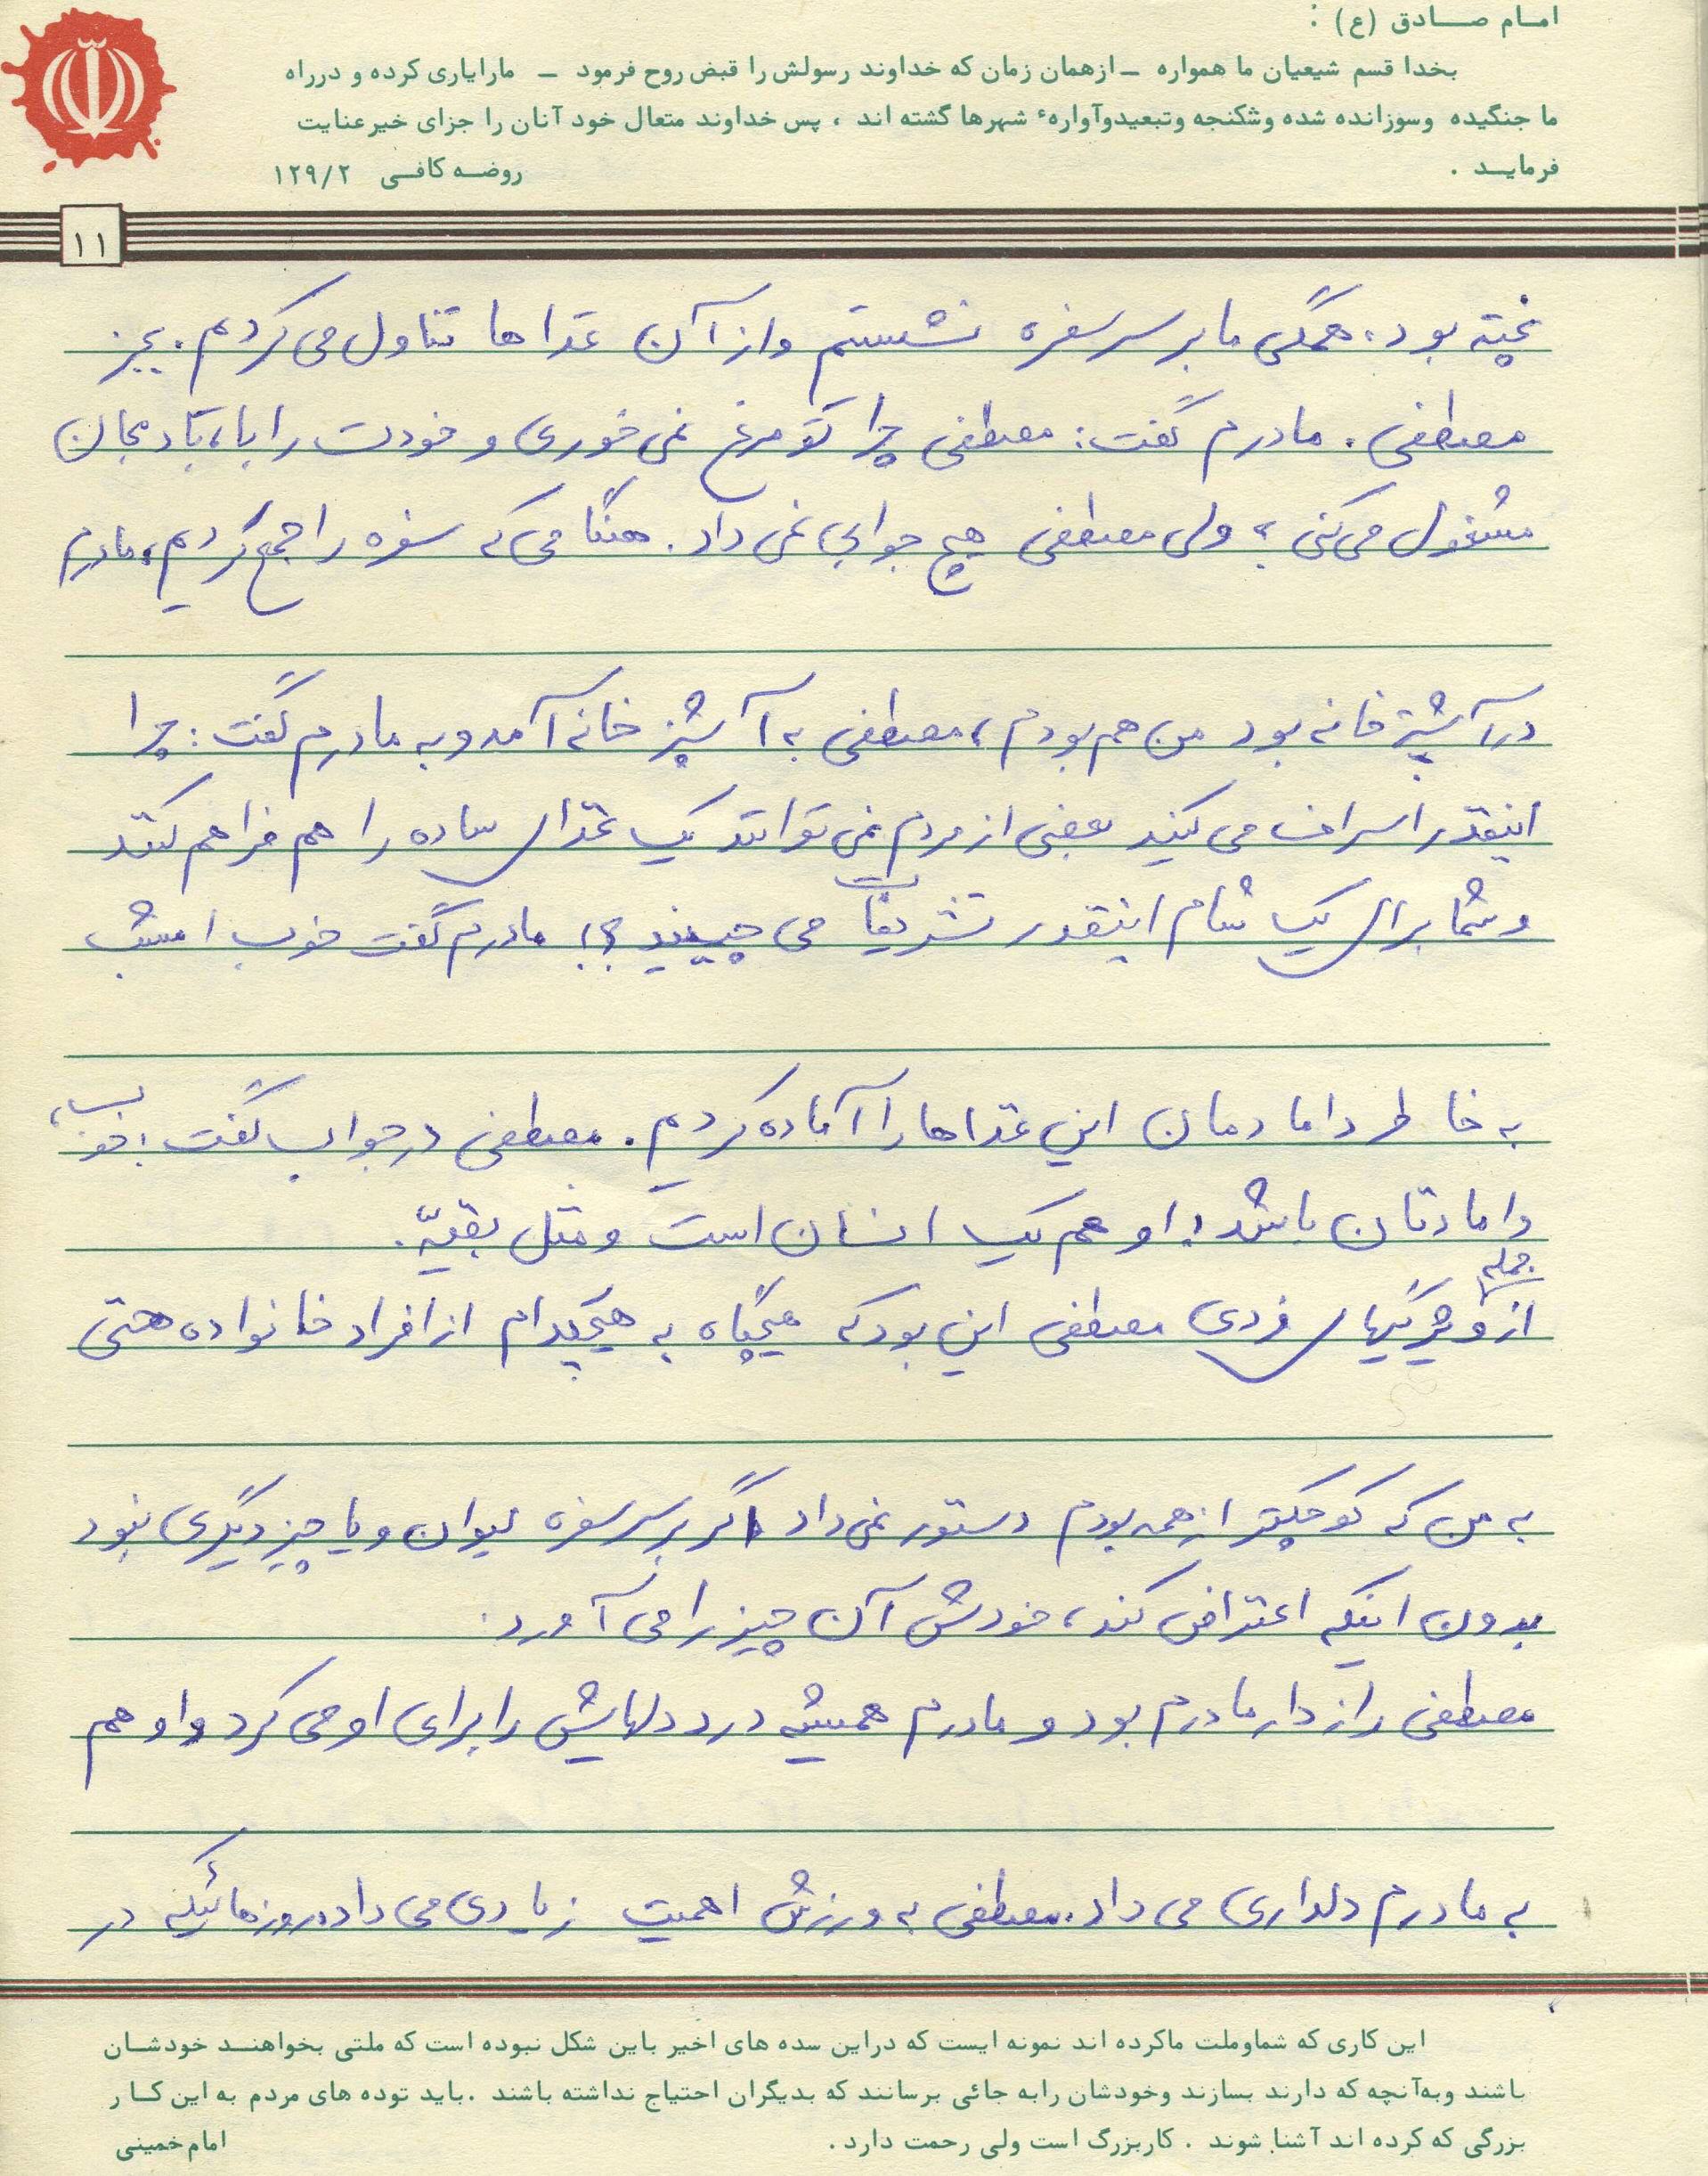 امام صادق (ع) :
بخدا قسم شیعیان ما همواره – ازهمان زمان که خداوند رسولش را قبض روح فرمود – مارایاری کرده و درراه
ما جنگیده وسوزانده شده وشکنجه وتبعیدوآواره⁠ٔ شهرها گشته اند ، پس خداوند متعال خود آنان را جزای خیر عنایت
فرماید .
روضه کافی ۱۲۹/۲
۱۱
پخته بود. همگی ما بر سر سفره نشستیم واز آن غذا ها تناول می کردیم. بجز
مصطفی. مادرم گفت: مصطفی چرا تو مرغ نمی خوری و خودت را با، بادمجان
مشغول می کنی ؟ ولی مصطفی هیچ جوابی نمی داد. هنگامی که سفره را جمع کردیم، مادرم
در آشپزخانه بود من هم بودم، مصطفی به آشپزخانه آمد و به مادرم گفت: چرا
اینقدر اسراف می کنید بعضی از مردم نمی توانند یک غذای ساده را هم فراهم کنند
و شما برای یک شام اینقدر تشریفات می چینید ؟! مادرم گفت خوب امشب
به خاطر دامادمان این غذاها را آماده کردیم. مصطفی در جواب گفت: خوب،
دامادتان باشد! او هم یک انسان است و مثل بقیّه.
از جمله ویژگیهای فردی مصطفی این بود که هیچگاه به هیچکدام از افراد خانواده حتی
به من که کوچکتر از همه بودم دستور نمی داد اگر بر سر سفره لیوان و یا چیز دیگری نبود
بدون اینکه اعتراض کند، خودش آن چیز را می آورد.
مصطفی رازدار مادرم بود و مادرم همیشه درد دلهایش را برای او می کرد و او هم
به مادرم دلداری می داد. مصطفی به ورزش اهمیت زیادی می داد. روزهائیکه در
این کاری که شماوملت ماکرده اند نمونه ایست که دراین سده های اخیر باین شکل نبوده است که ملتی بخواهند خودشان
باشند وبه‌آنچه که دارند بسازند وخودشان رابه جائی برسانند که بدیگران احتیاج نداشته باشند .باید توده های مردم به این کار
بزرگی که کرده اند آشنا شوند . کاربزرگ است ولی رحمت دارد .
امام خمینی